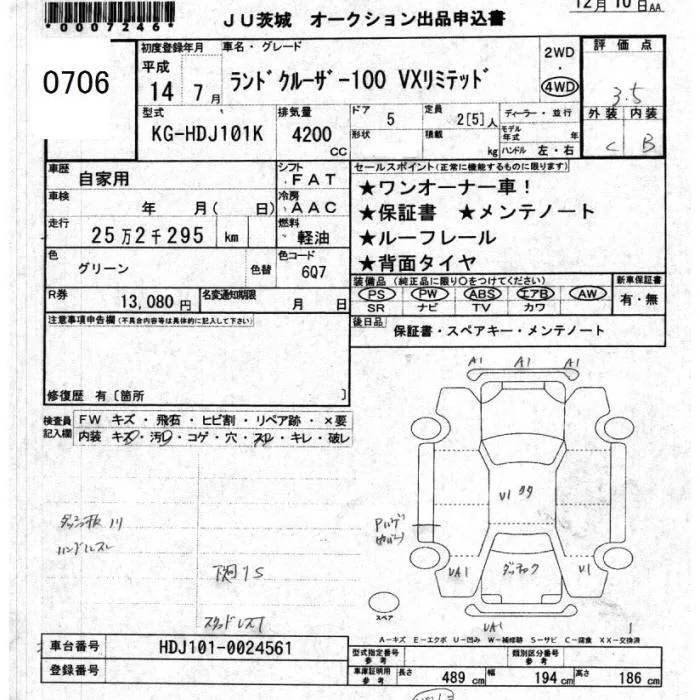 12月10日AA
*0007246*
JU茨城 オークション出品申込書
0706
初度登録年月
平成
14 7月
車名・グレード
ランドクルーザー100 VXリミテッド
2WD
・
4WD
評価点
3.5
外装 内装
C B
型式
KG-HDJ101K
排気量
4200
CC
ドア
5
定員
2[5]人
形状
積載
kg
ディーラー・並行
モデル年式 年
ハンドル 左・右
車歴
自家用
シフト
FAT
車検
年 月( 日)
冷房
AAC
走行
25万2千295 km
燃料
軽油
色
グリーン
色替
色コード
6Q7
R券
13,080円
名変通知期限
月 日
セールスポイント(正常に機能するものに限ります)
★ワンオーナー車!
★保証書 ★メンテノート
★ルーフレール
★背面タイヤ
装備品(純正品に限り○をつけてください)
PS PW ABS エアB AW
SR ナビ TV カワ
新車保証書
有・無
後日品
保証書・スペアキー・メンテノート
注意事項申告欄(不具合内容等は具体的に記入して下さい)
修復歴 有〔箇所 〕
検査員記入欄
FW キズ・飛石・ヒビ割・リペア跡・×要
内装 キズ・汚・コゲ・穴・スレ・キレ・破レ
ハンドルスレ
A1 A1 A1
V1
VA1
V1
VA1
スペア
A-キズ E-エクボ U-凹み W-補修跡 S-サビ C-腐食 XX-交換済
車台番号
HDJ101-0024561
登録番号
型式指定番号
参考
類別区分番号
参考
車庫証明用
参考
長さ 489 cm 幅 194 cm 高さ 186 cm